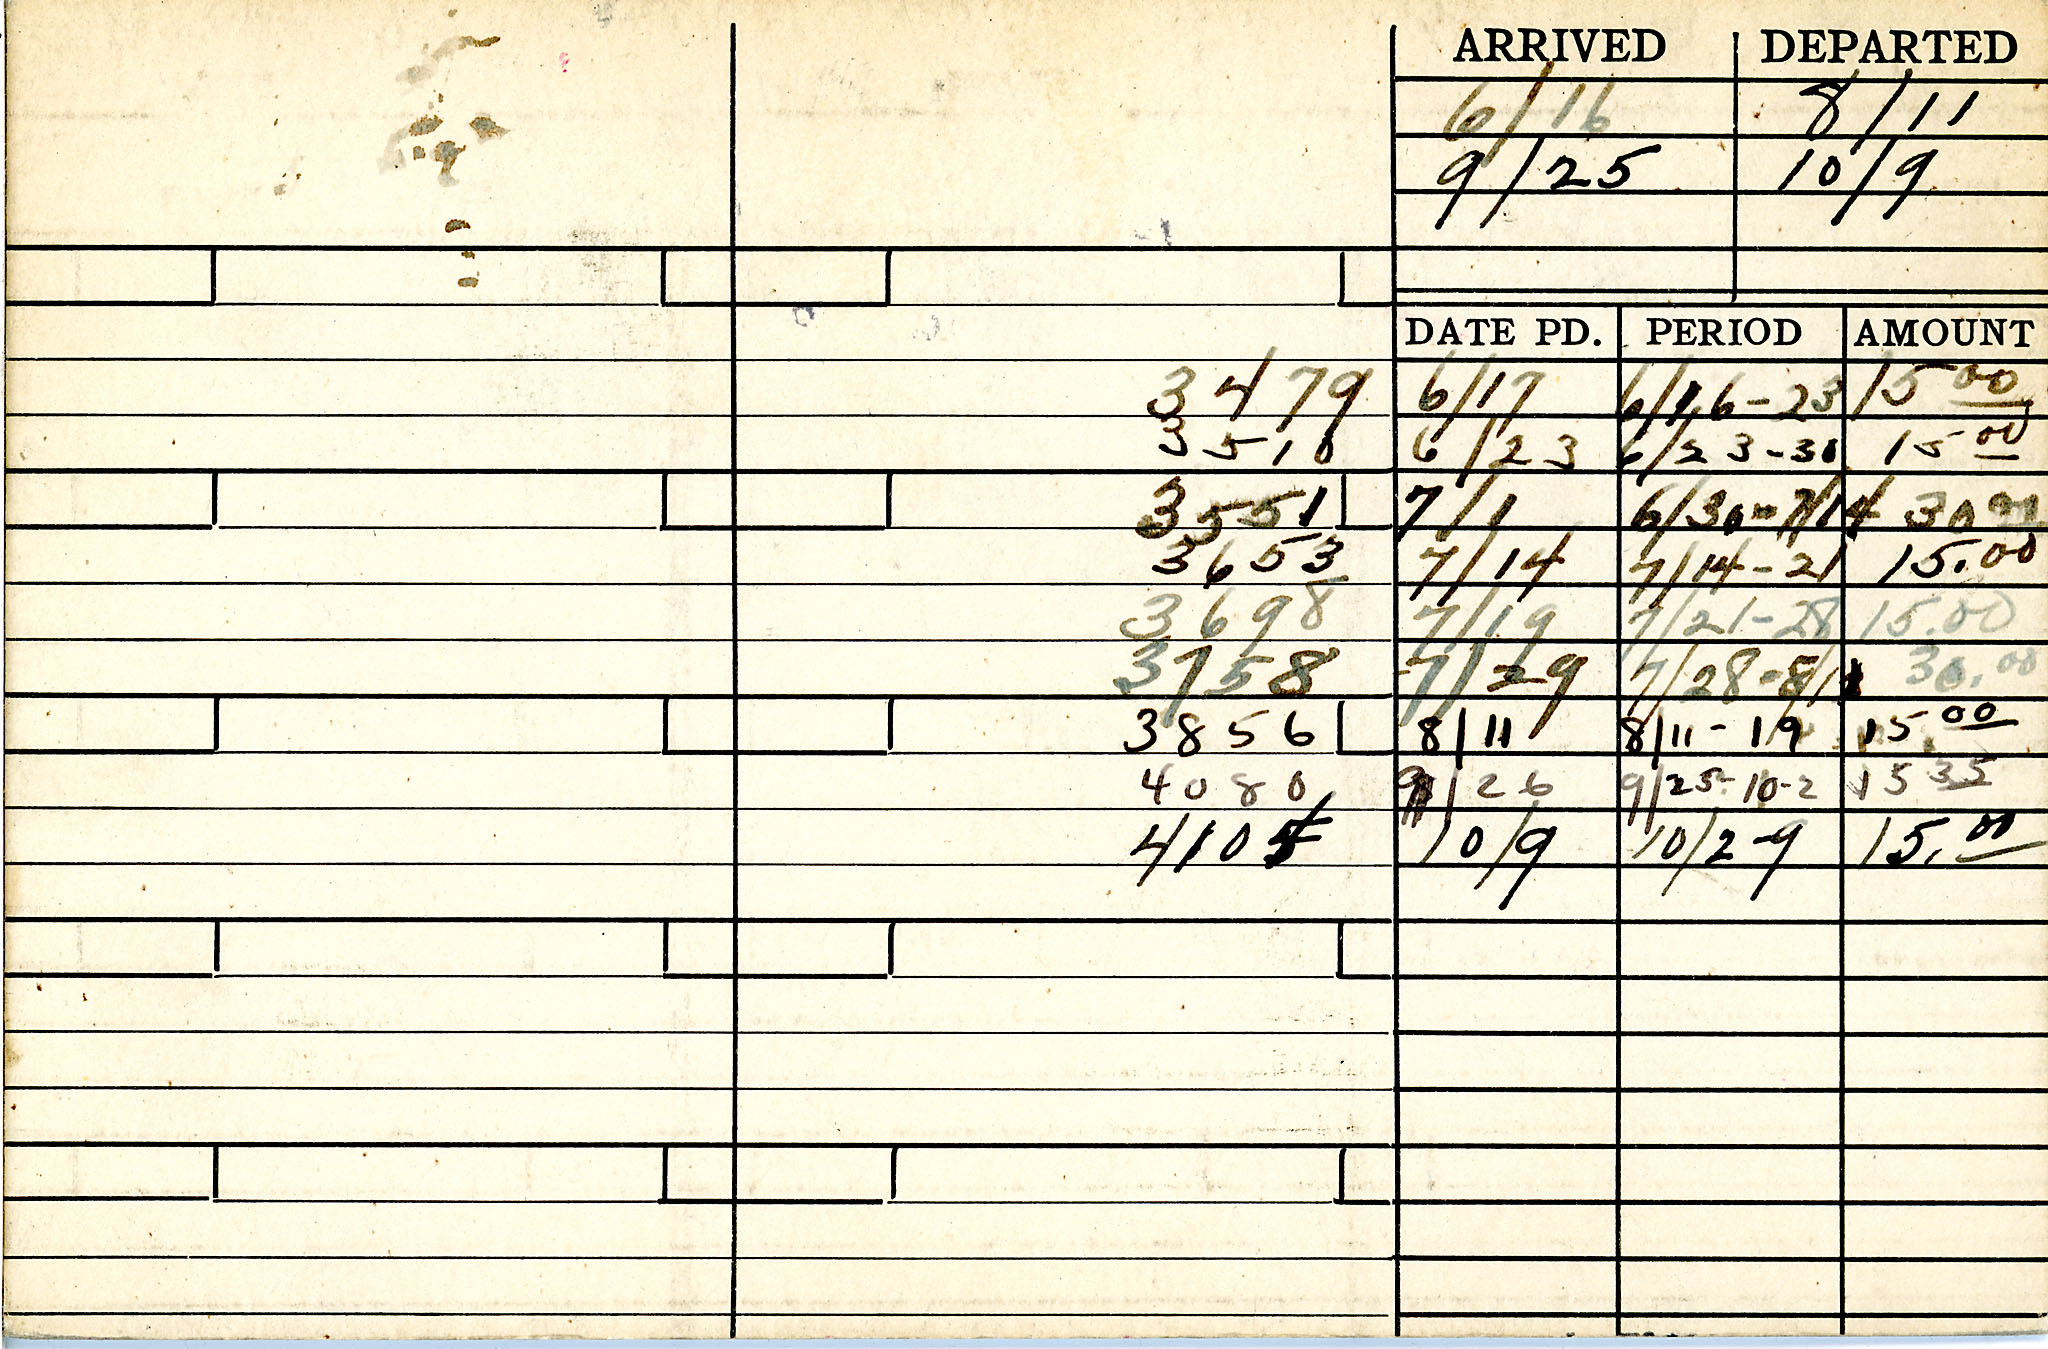 ARRIVED DEPARTED
6/16 8/11
9/25 10/9
DATE PD. PERIOD AMOUNT
3479 6/17 6/16-23 15 00
3510 6/23 6/23-30 15 00
3551 7/1 6/30-7/14 30 00
3653 7/14 7/14-21 15.00
3698 7/19 7/21-28 15.00
3758 7/29 7/28-8/11 30.00
3856 8/11 8/11-19 15 00
4080 9/26 9/25-10-2 15 35
4105 10/9 10/2-9 15.00